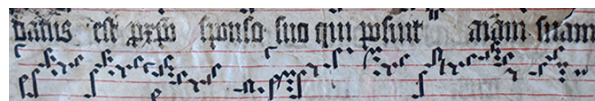 datus est ꝓ xp̄o sponso suo qui posuit aīam suam